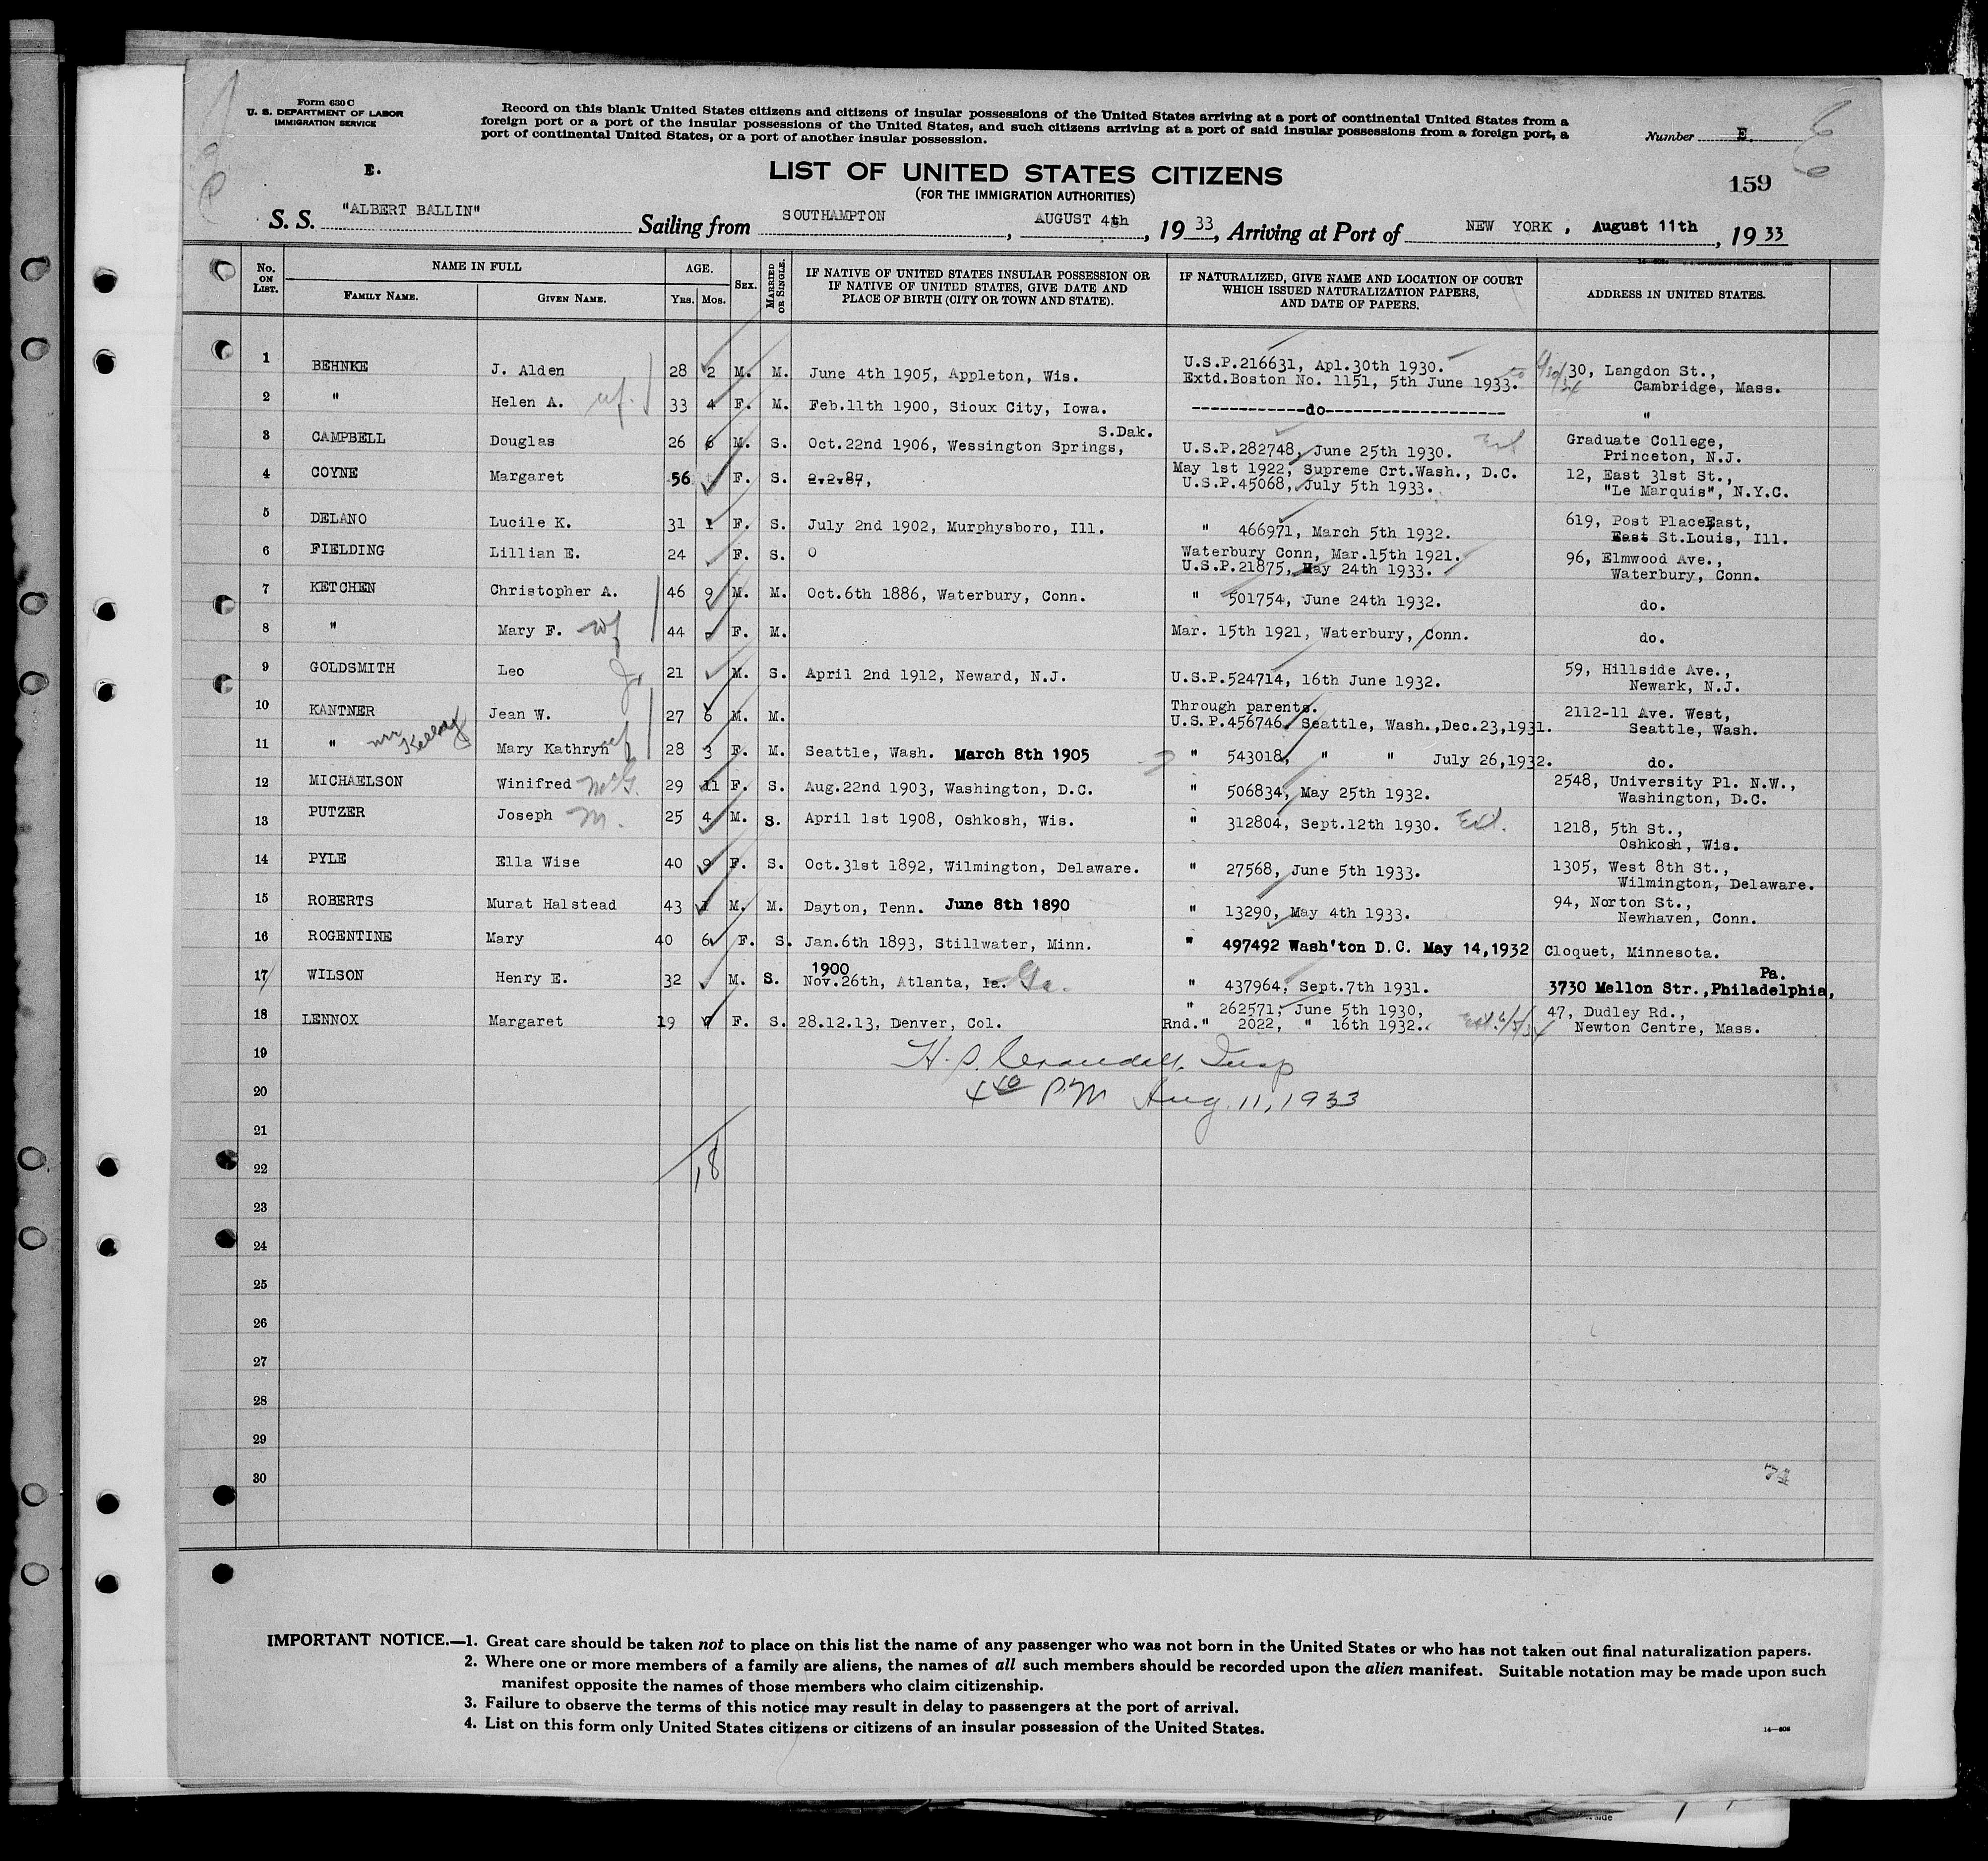 Form 630 C
U. S. DEPARTMENT OF LABOR
IMMIGRATION SERVICE
Record on this blank United States citizens and citizens of insular possessions of the United States arriving at a port of continental United States from a
foreign port or a port of the insular possessions of the United States, and such citizens arriving at a port of said insular possessions from a foreign port, a
port of continental United States, or a port of another insular possession.
Number E.
E.
LIST OF UNITED STATES CITIZENS
(FOR THE IMMIGRATION AUTHORITIES)
159
S. S. "ALBERT BALLIN" Sailing from SOUTHAMPTON, AUGUST 4th, 1933, Arriving at Port of NEW YORK, August 11th, 1933
No. ON LIST.
NAME IN FULL
FAMILY NAME.
GIVEN NAME.
AGE.
Yrs. Mos.
SEX.
MARRIED OR SINGLE.
IF NATIVE OF UNITED STATES INSULAR POSSESSION OR
IF NATIVE OF UNITED STATES, GIVE DATE AND
PLACE OF BIRTH (CITY OR TOWN AND STATE).
IF NATURALIZED, GIVE NAME AND LOCATION OF COURT
WHICH ISSUED NATURALIZATION PAPERS,
AND DATE OF PAPERS.
ADDRESS IN UNITED STATES.
1 BEHNKE J. Alden 28 2 M. M. June 4th 1905, Appleton, Wis. U.S.P.216631, Apl.30th 1930. 30, Langdon St.,
Extd.Boston No. 1151, 5th June 1933. Cambridge, Mass.
2 " Helen A. wf. 33 4 F. M. Feb.11th 1900, Sioux City, Iowa. ------------do------------------- "
3 CAMPBELL Douglas 26 6 M. S. Oct.22nd 1906, Wessington Springs, S.Dak. U.S.P.282748, June 25th 1930. Ext Graduate College,
Princeton, N.J.
4 COYNE Margaret 56 F. S. 2.2.87, May 1st 1922, Supreme Crt.Wash., D.C. 12, East 31st St.,
U.S.P.45068, July 5th 1933. "Le Marquis", N.Y.C.
5 DELANO Lucile K. 31 1 F. S. July 2nd 1902, Murphysboro, Ill. " 466971, March 5th 1932. 619, Post Place East,
East St.Louis, Ill.
6 FIELDING Lillian E. 24 F. S. O Waterbury Conn, Mar.15th 1921. 96, Elmwood Ave.,
U.S.P.21875, May 24th 1933. Waterbury, Conn.
7 KETCHEN Christopher A. 46 9 M. M. Oct.6th 1886, Waterbury, Conn. " 501754, June 24th 1932. do.
8 " Mary F. wf 44 - F. M. Mar. 15th 1921, Waterbury, Conn. do.
9 GOLDSMITH Leo Jr 21 M. S. April 2nd 1912, Neward, N.J. U.S.P.524714, 16th June 1932. 59, Hillside Ave.,
Newark, N.J.
10 KANTNER Jean W. 27 6 M. M. Through parents. 2112-11 Ave. West,
U.S.P.456746, Seattle, Wash.,Dec.23,1931. Seattle, Wash.
11 " nm Kellogg Mary Kathryn wf 28 3 F. M. Seattle, Wash. March 8th 1905 " 543018, " " July 26,1932. do.
12 MICHAELSON Winifred McG. 29 11 F. S. Aug.22nd 1903, Washington, D.C. " 506834, May 25th 1932. 2548, University Pl. N.W.,
Washington, D.C.
13 PUTZER Joseph M. 25 4 M. S. April 1st 1908, Oshkosh, Wis. " 312804, Sept.12th 1930. Ext. 1218, 5th St.,
Oshkosh, Wis.
14 PYLE Ella Wise 40 9 F. S. Oct.31st 1892, Wilmington, Delaware. " 27568, June 5th 1933. 1305, West 8th St.,
Wilmington, Delaware.
15 ROBERTS Murat Halstead 43 1 M. M. Dayton, Tenn. June 8th 1890 " 13290, May 4th 1933. 94, Norton St.,
Newhaven, Conn.
16 ROGENTINE Mary 40 6 F. S. Jan.6th 1893, Stillwater, Minn. " 497492 Wash'ton D.C. May 14,1932 Cloquet, Minnesota.
17 WILSON Henry E. 32 M. S. 1900 Nov.26th, Atlanta, Ia. Ga. " 437964, Sept.7th 1931. 3730 Mellon Str.,Philadelphia, Pa.
18 LENNOX Margaret 19 7 F. S. 28.12.13, Denver, Col. " 262571, June 5th 1930, 47, Dudley Rd.,
Rnd." 2022, " 16th 1932. Ext. 6/5/34 Newton Centre, Mass.
19
H. S. Crandall, Insp
20
4 40 PM Aug. 11, 1933
21
22
18
23
24
25
26
27
28
29
30
74
IMPORTANT NOTICE.—1. Great care should be taken not to place on this list the name of any passenger who was not born in the United States or who has not taken out final naturalization papers.
2. Where one or more members of a family are aliens, the names of all such members should be recorded upon the alien manifest. Suitable notation may be made upon such
manifest opposite the names of those members who claim citizenship.
3. Failure to observe the terms of this notice may result in delay to passengers at the port of arrival.
4. List on this form only United States citizens or citizens of an insular possession of the United States.